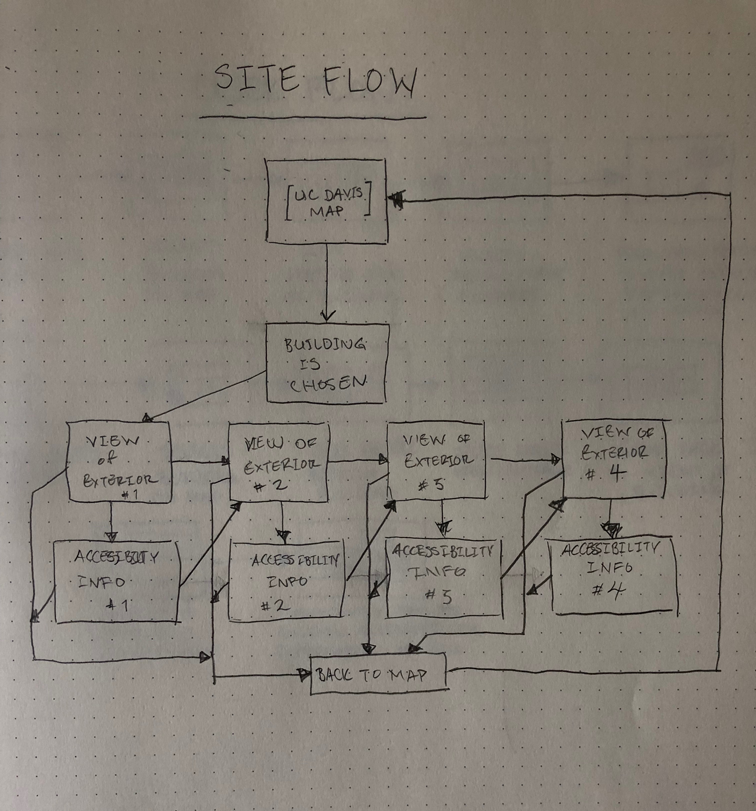 SITE FLOW
[UC DAVIS]
MAP
BUILDING
IS
CHOSEN
VIEW
of
EXTERIOR
#1
VIEW OF
EXTERIOR
#2
VIEW OF
EXTERIOR
#3
VIEW OF
EXTERIOR
#4
ACCESSIBILITY
INFO
#1
ACCESSIBILITY
INFO
#2
ACCESSIBILITY
INFO
#3
ACCESSIBILITY
INFO
#4
BACK TO MAP